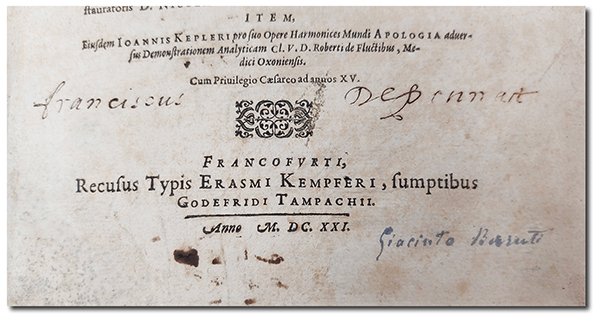 stauratoris D. NICO
ITEM,
Eiusdem IOANNIS KEPLERI pro suo Opere Harmonices Mundi APOLOGIA adver-
sus Demonstrationem Analyticam Cl. V. D. Roberti de Fluctibus, Me-
dici Oxoniensis.
Cum Priuilegio Cæsareo ad annos XV.
franciscus
FRANCOFVRTI,
Recusus Typis ERASMI KEMPFERI, sumptibus
GODEFRIDI TAMPACHII.
Anno M. DC. XXI.
Giacinto